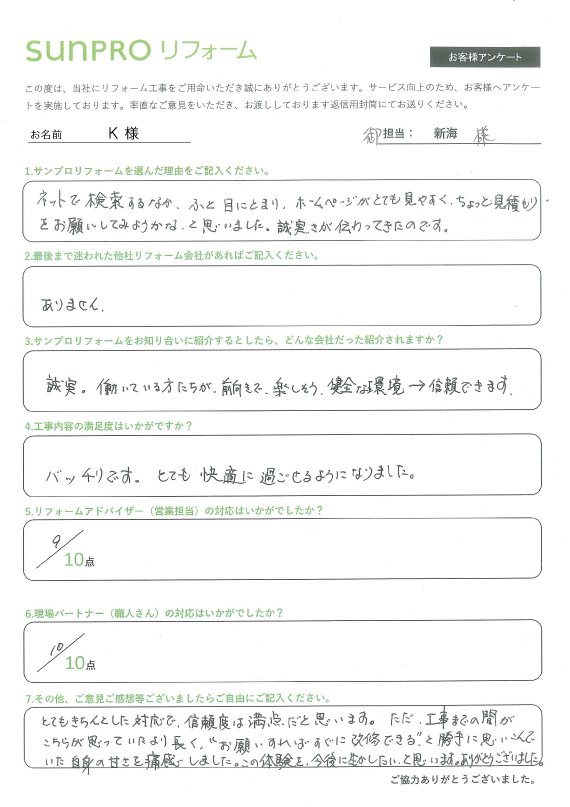 SUNPRO リフォーム
お客様アンケート
この度は、当社にリフォーム工事をご用命いただき誠にありがとうございます。サービス向上のため、お客様へアンケー
トを実施しております。率直なご意見をいただき、お渡ししております返信用封筒にてお送りください。
お名前 K 様 御担当： 新海 様
1.サンプロリフォームを選んだ理由をご記入ください。
ネットで検索するなか、ふと目にとまり、ホームページがとても見やすく、ちょっと見積もり
をお願いしてみようかな、と思いました。誠実さが伝わってきたのです。
2.最後まで迷われた他社リフォーム会社があればご記入ください。
ありません。
3.サンプロリフォームをお知り合いに紹介するとしたら、どんな会社だった紹介されますか？
誠実。働いている方たちが、前向きで、楽しそう、健全な環境→信頼できます。
4.工事内容の満足度はいかがですか？
バッチリです。とても快適に過ごせるようになりました。
5.リフォームアドバイザー（営業担当）の対応はいかがでしたか？
9/10点
6.現場パートナー（職人さん）の対応はいかがでしたか？
10/10点
7.その他、ご意見ご感想等ございましたらご自由にご記入ください。
とてもきちんとした対応で、信頼度は満点だと思います。ただ、工事までの間が
こちらが思っていたより長く、"お願いすればすぐに改修できる"と勝手に思いこんで
いた自身の甘さを痛感しました。この体験を、今後に生かしたいと思います。ありがとうございました。
ご協力ありがとうございました。